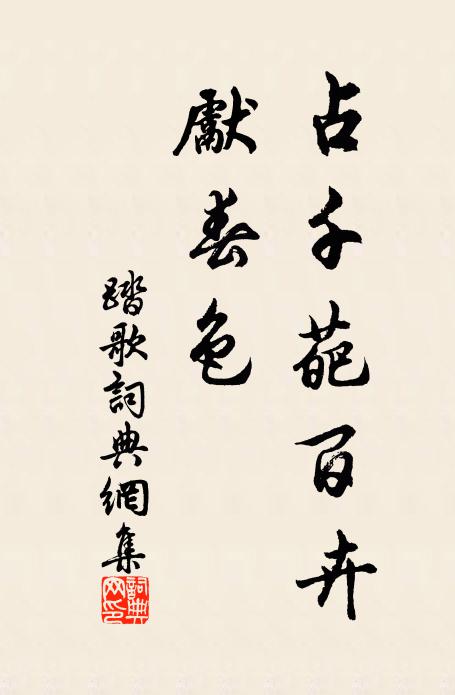 占千葩百卉
獻春色
踏歌詞典網集
詞典網印